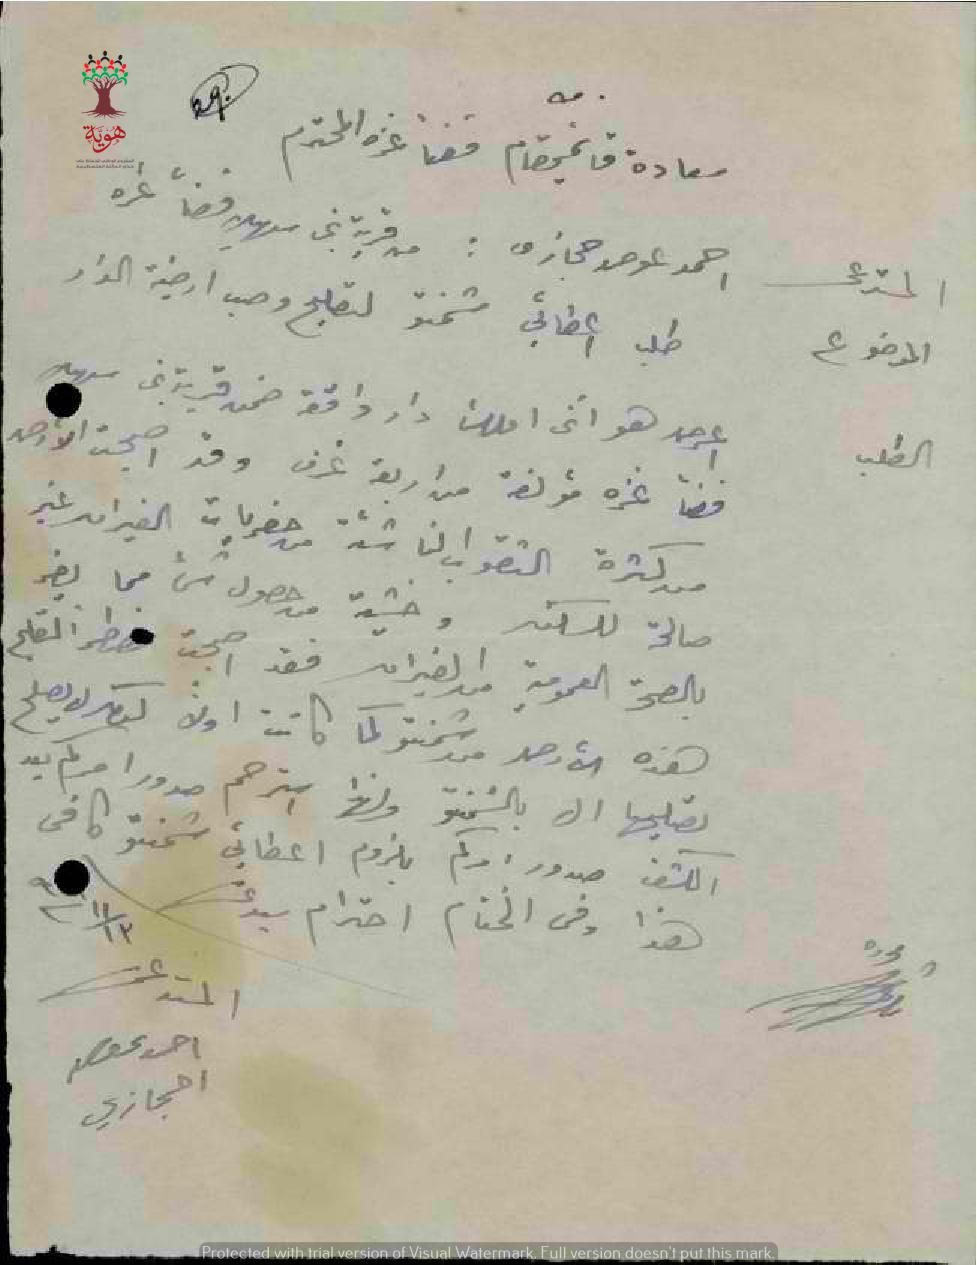 هوية
سعادة قائمقام قضاء غزه المحترم
المستدعي احمد عوض حجازي : من قرية بني سهيله قضاء غزه
الموضوع طلب اعطائي شمنتو لتصليح وصب ارضية الدار
الطلب اعرض هو انني املك دار واقعة ضمن قرية بني سهيله
قضاء غزه مؤلفة من اربعة غرف وقد اصبحت الأرض
من كثرة الثقوب الناشئة من حفريات الفيران غير
صالحة للسكن وخشية من حصول شئ مما يضر
بالصحة العمومية من الفيران فقد اصبحت مضطر لتصليح
هذه الأرض من شمنتو كما كانت اولا لكن لا يصلح
تصليحها الا بالشمنتو ولهذا استرحم صدور امركم بعد
الكشف صدور امركم بلزوم اعطائي شمنتو كافي
هذا وفي الختام احترام سيدي
المستدعي
احمد عوض
احجازي
Protected with trial version of Visual Watermark. Full version doesn't put this mark.